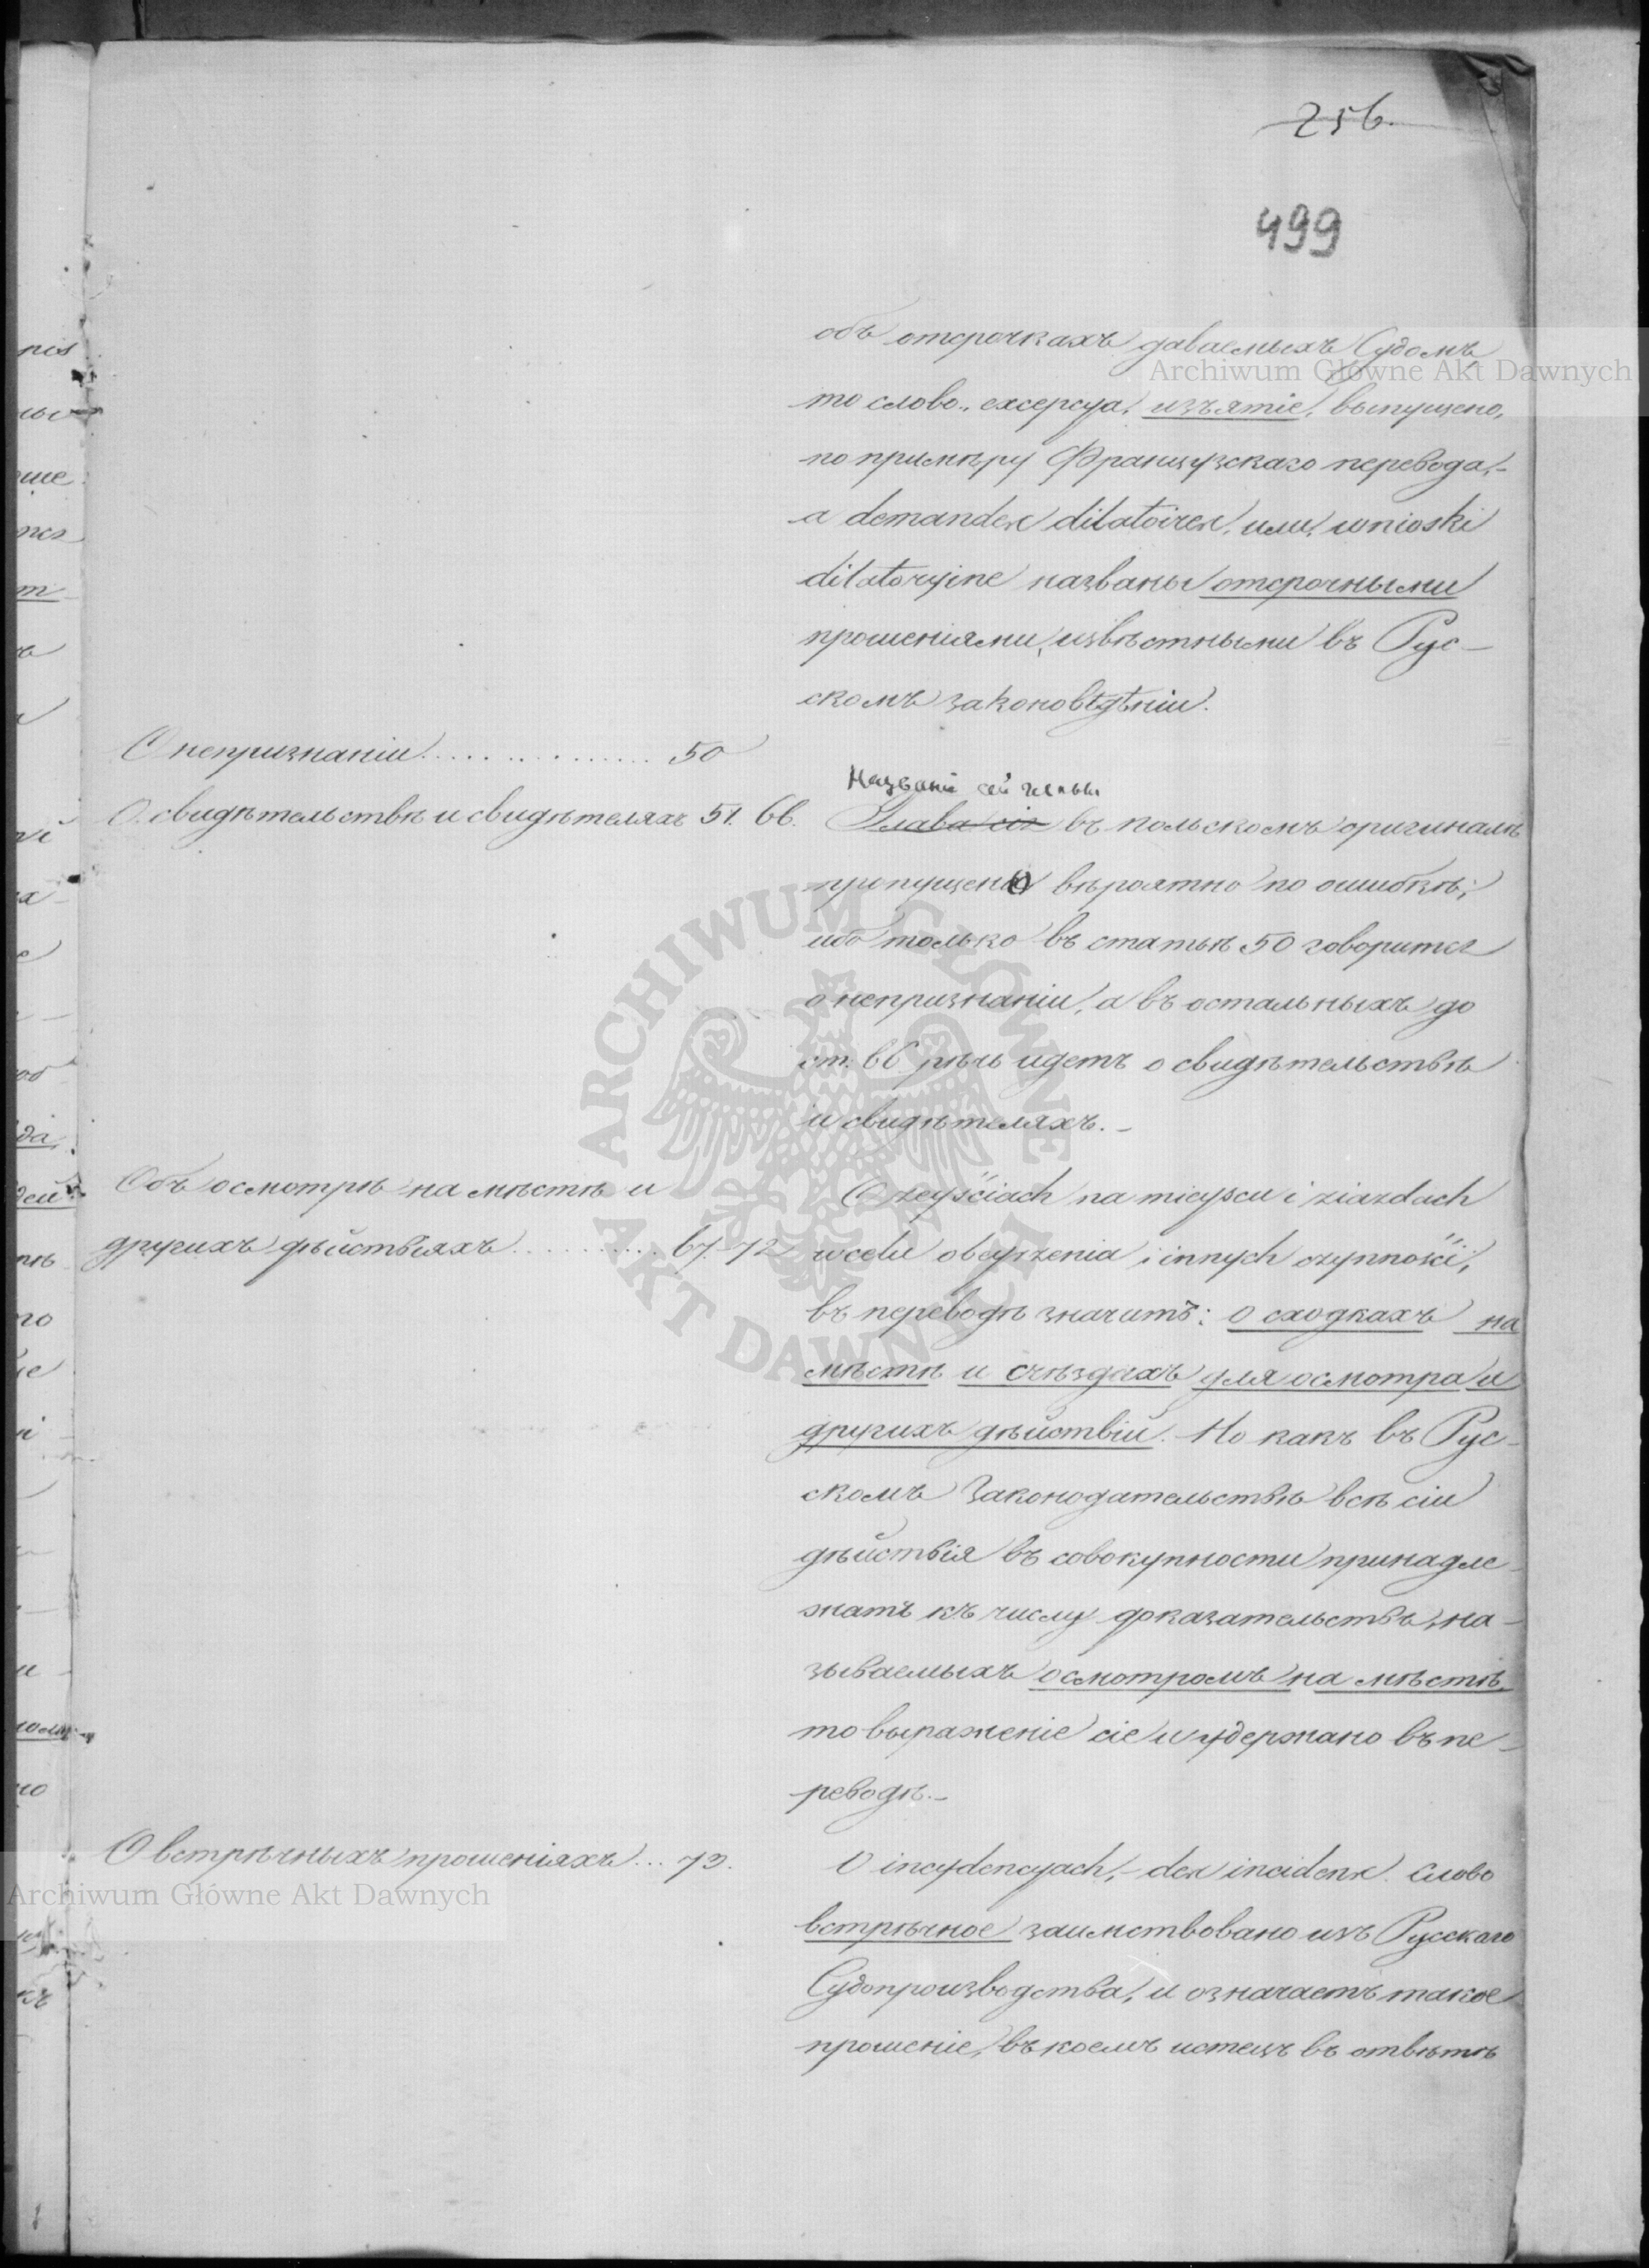 256.
499
объ отсрочкахъ даваемыхъ Судомъ,
то слово „ексерсуа, изъятіе, выпущено,
по примѣру Французскаго перевода,-
а demandes dilatoires, или, wnioski
dilatoryjne названы отсрочными
прошеніями, извѣстными въ Рус-
скомъ законовѣдѣніи.
О непризнаніи................ 50
О свидѣтельствѣ и свидѣтеляхъ 51. 66.
Названіе сей главы
Глава сія въ польскомъ оригиналѣ
пропущено вѣроятно по ошибкѣ;
ибо только въ статьѣ 50 говорится
о непризнаніи, а въ остальныхъ до
ст. 66 рѣчь идетъ о свидѣтельствѣ
и свидѣтеляхъ.-
Объ осмотрѣ на мѣстѣ и
другихъ дѣйствіяхъ............ 67. 72
O zeyściach na mieyscu i ziazdach
w celu obeyrzenia i innych czynności,
въ переводѣ значитъ: о сходкахъ на
мѣстѣ и съѣздахъ для осмотра и
другихъ дѣйствій. Но какъ въ Рус-
скомъ Законодательствѣ всѣ сіи
дѣйствія въ совокупности принадле-
жатъ къ числу доказательствъ, на-
зываемыхъ осмотромъ на мѣстѣ,
то выраженіе сіе и удержано въ пе-
реводѣ.-
О встрѣчныхъ прошеніяхъ... 73.
O incydencyach,- des incidens. Слово
встрѣчное заимствовано изъ Русскаго
Судопроизводства, и означаетъ такое
прошеніе, въ коемъ истецъ въ отвѣтѣ
Archiwum Główne Akt Dawnych
ARCHIWUM GŁÓWNE AKT DAWNYCH
Archiwum Główne Akt Dawnych